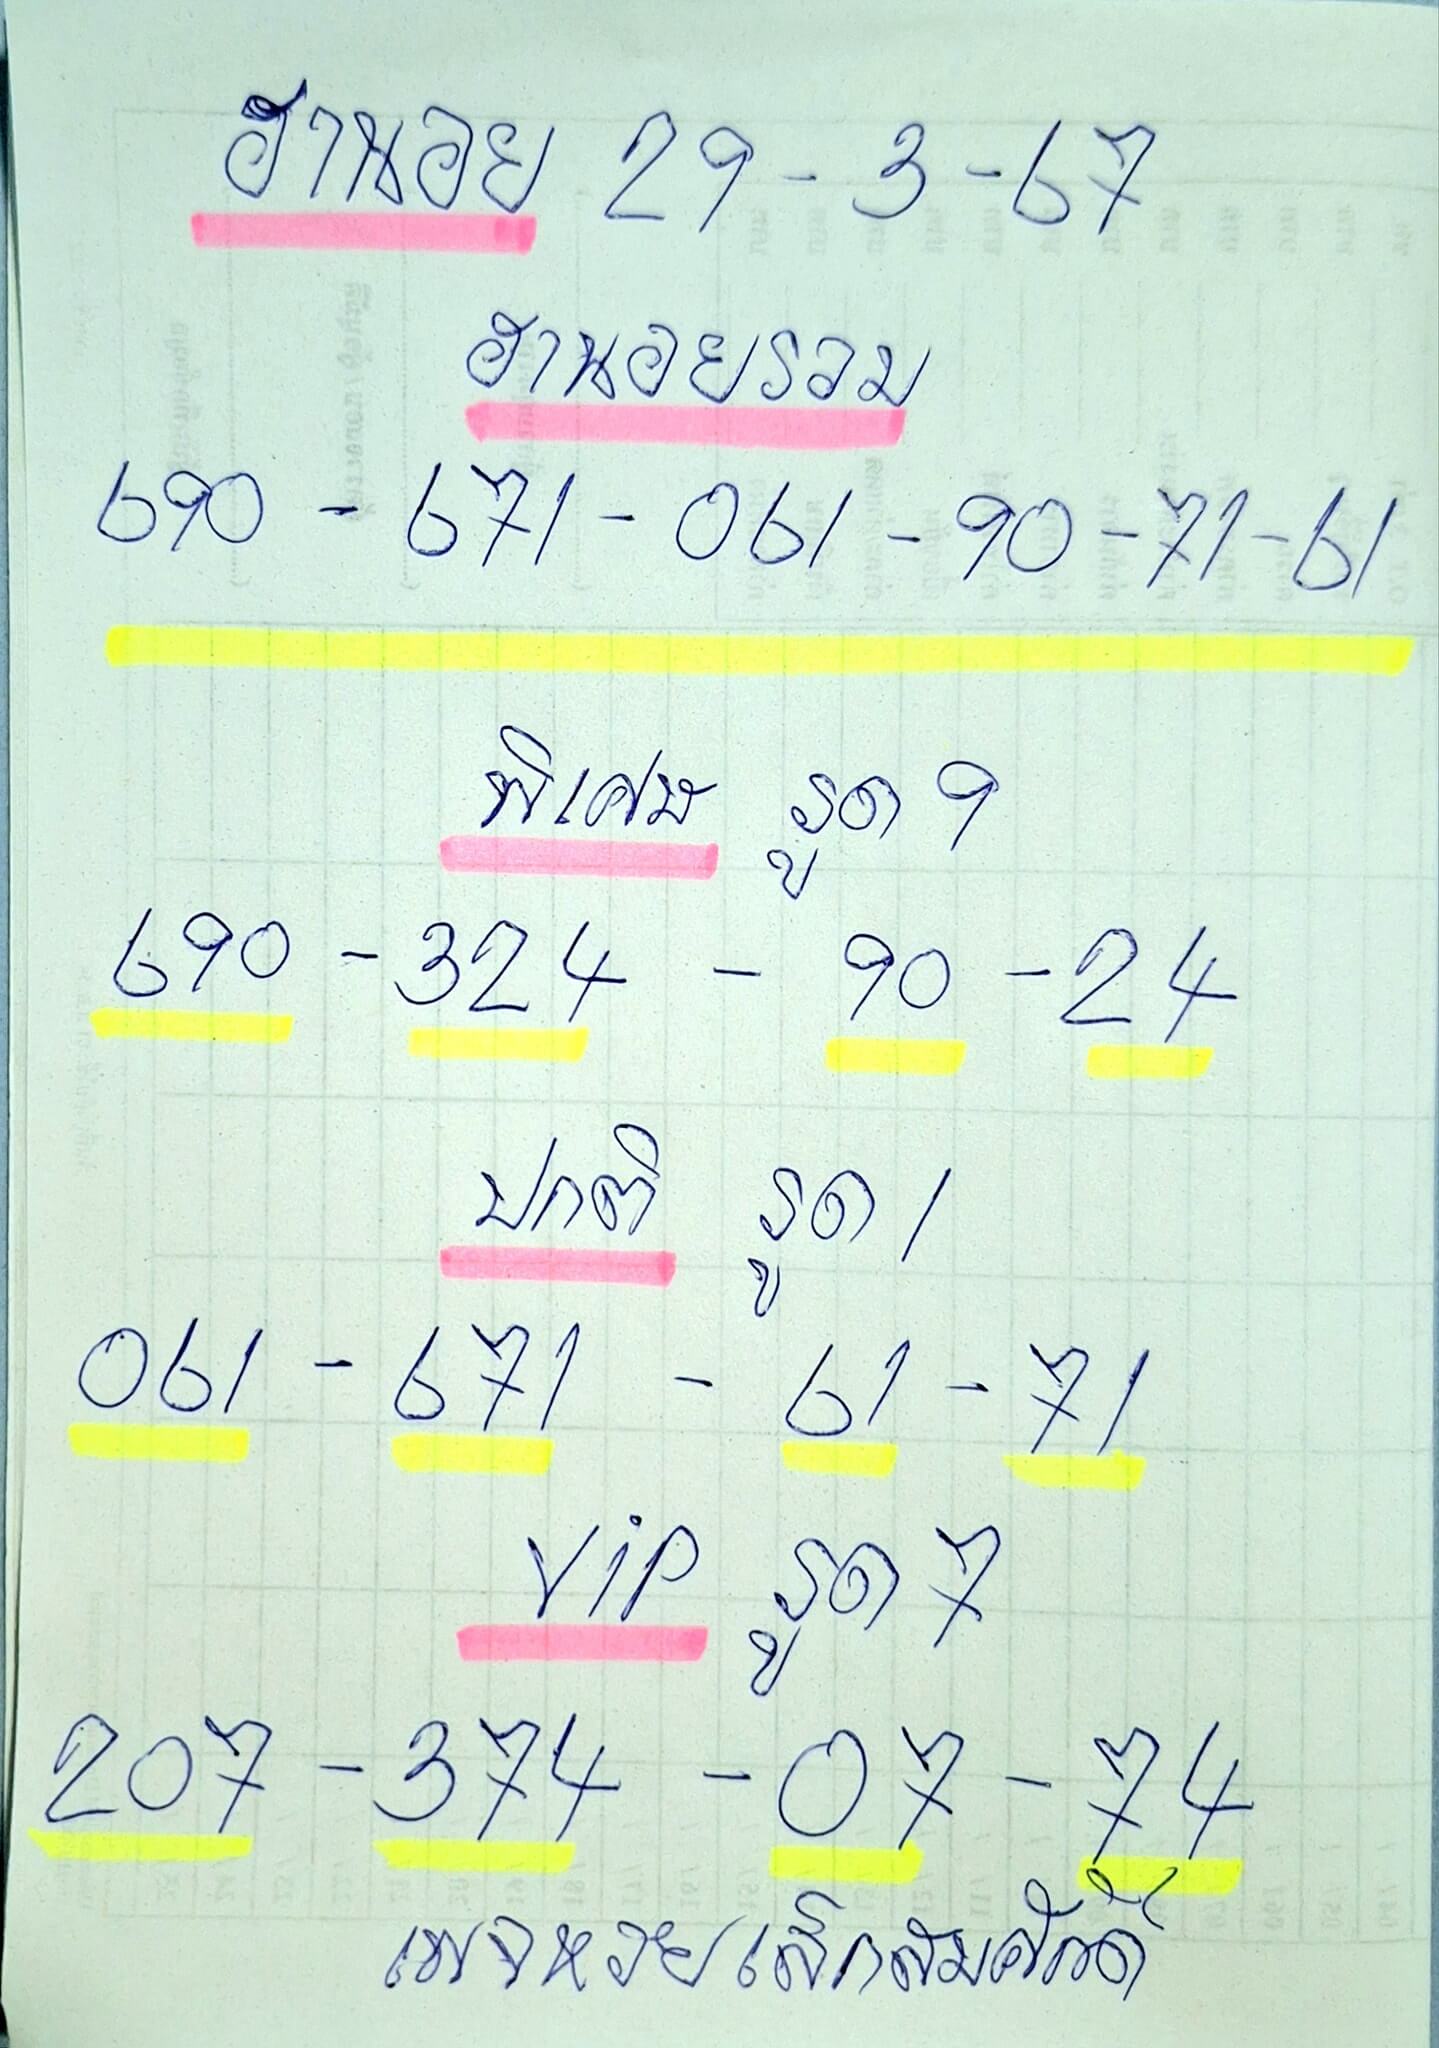 ฮานอย 29-3-67
ฮานอยรวม
690 - 671 - 061 - 90 - 71 - 61
พิเศษ รูด 9
690 - 324 - 90 - 24
ปกติ รูด 1
061 - 671 - 61 - 71
Vip รูด 7
207 - 374 - 07 - 74
เพจหวยเล็กสมศักดิ์